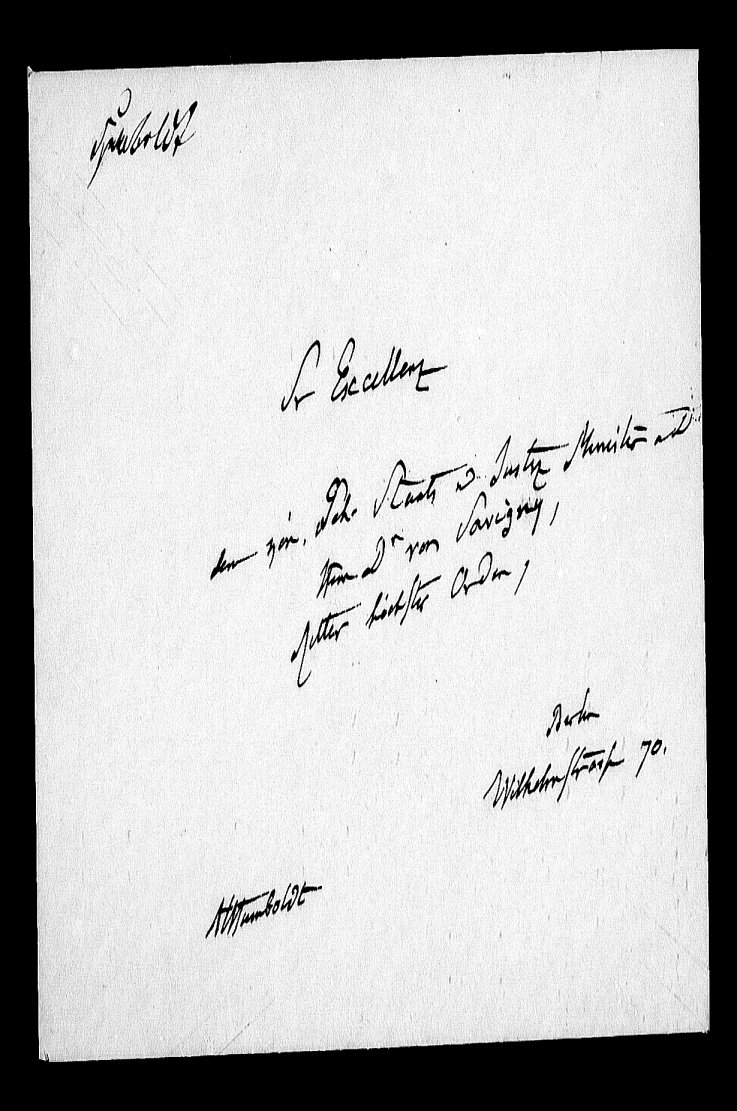 Humboldt
Sr Excellenz
den kön. Geh. Staats u. Justiz Minister aD
Herrn Dr von Savigny,
Ritter höchster Orden,
Berlin
Wilhelmstrasse 70.
AvHumboldt